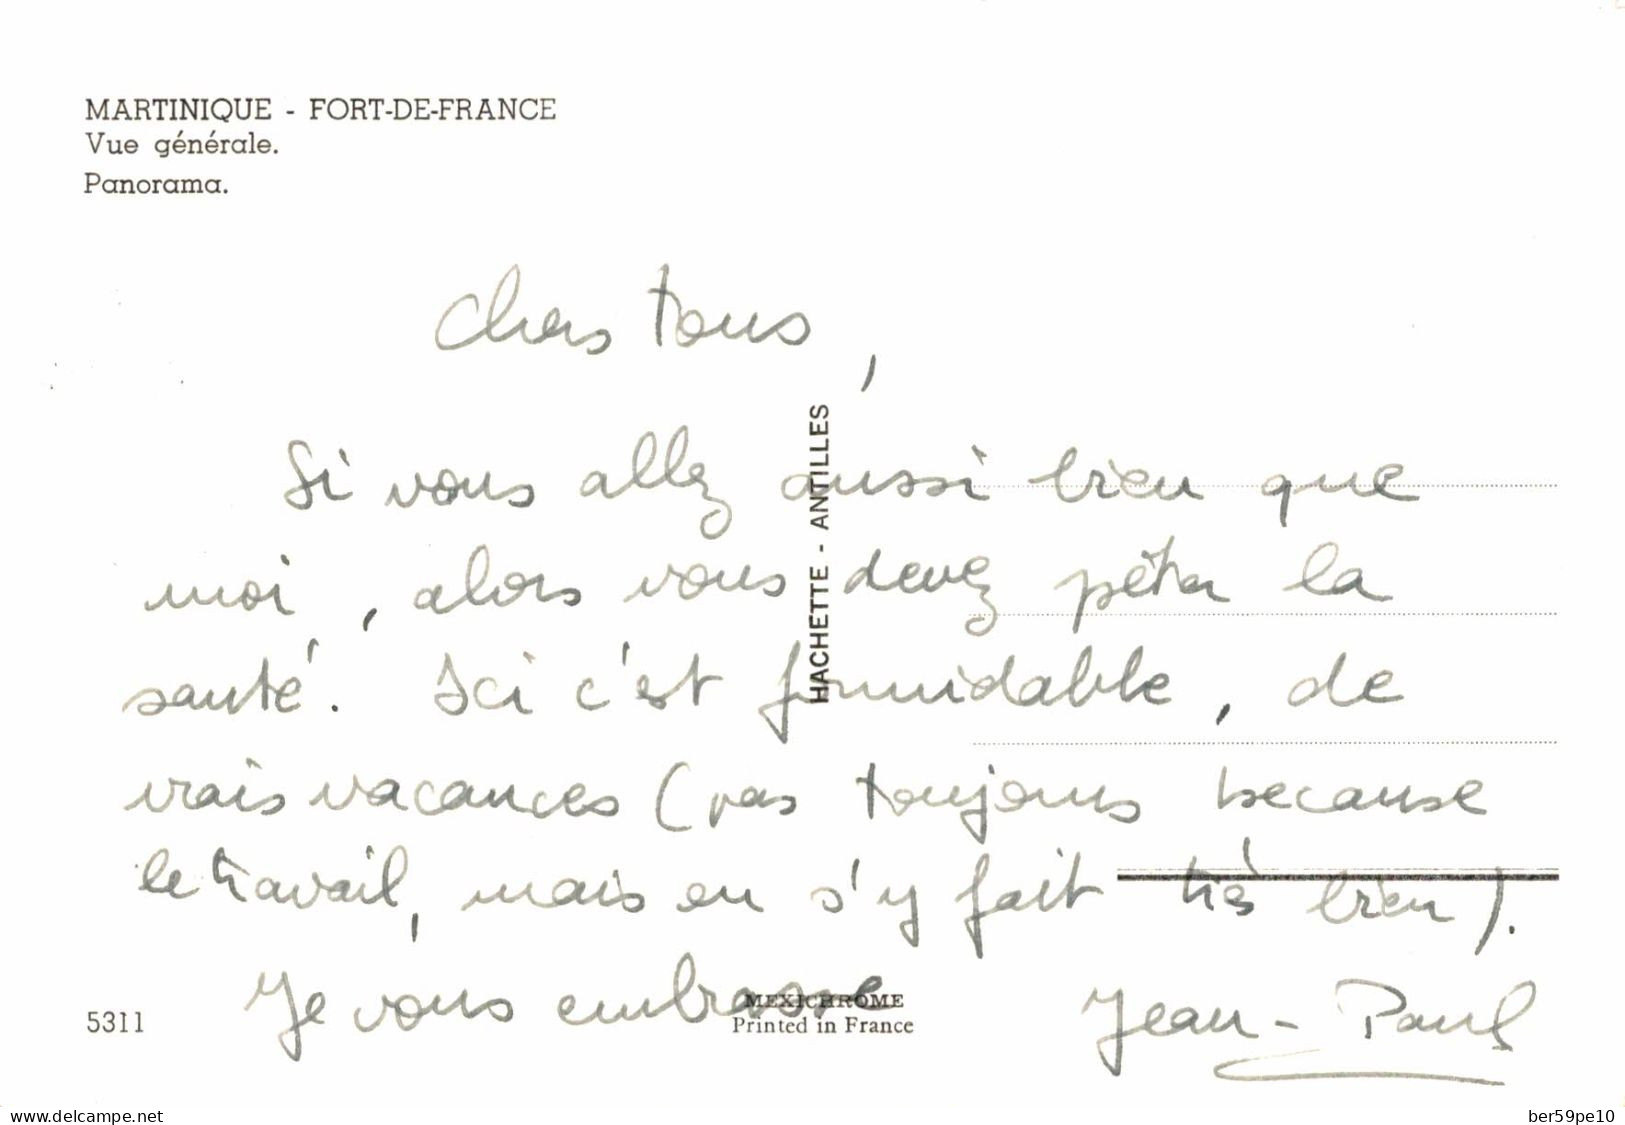 MARTINIQUE - FORT-DE-FRANCE
Vue générale.
Panorama.
Chers tous,
HACHETTE - ANTILLES
Si vous allez aussi bien que
moi, alors vous devez péter la
santé. Ici c'est formidable, de
vrais vacances (pas toujours because
le travail, mais on s'y fait très bien).
Je vous embrasse
Jean-Paul
5311
MEXICHROME
Printed in France
www.delcampe.net
ber59pe10